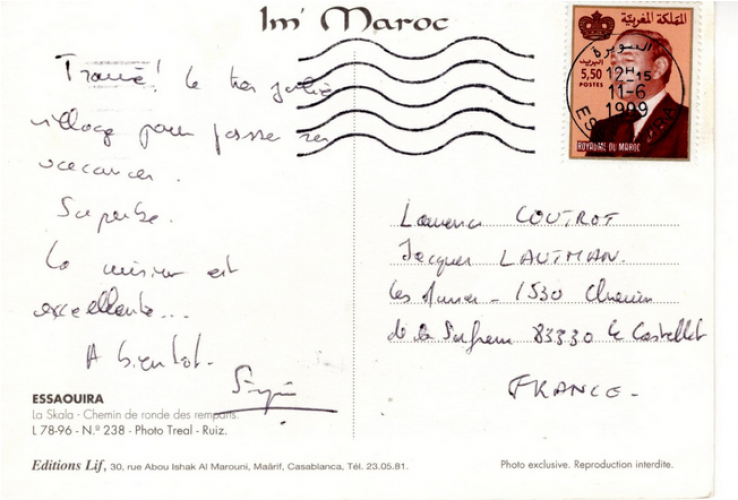 Im' Maroc
Trouvé! le très joli
village pour passer ses
vacances.
Superbe.
La cuisine est
excellente...
A bientot.
ESSAOUIRA
La Skala - Chemin de ronde des remparts.
L 78-96 - N.º 238 - Photo Treal - Ruiz.
Editions Lif, 30, rue Abou Ishak Al Marouni, Maârif, Casablanca, Tél. 23.05.81.
المملكة المغربية
البريد
5,50
POSTES
ROYAUME DU MAROC
السويرة
12H15
11-6
1999
Laurence COUTROT
Jacques LAUTMAN.
les - 1530 Chemin
de la 83330 le Castellet
FRANCE-
Photo exclusive. Reproduction interdite.